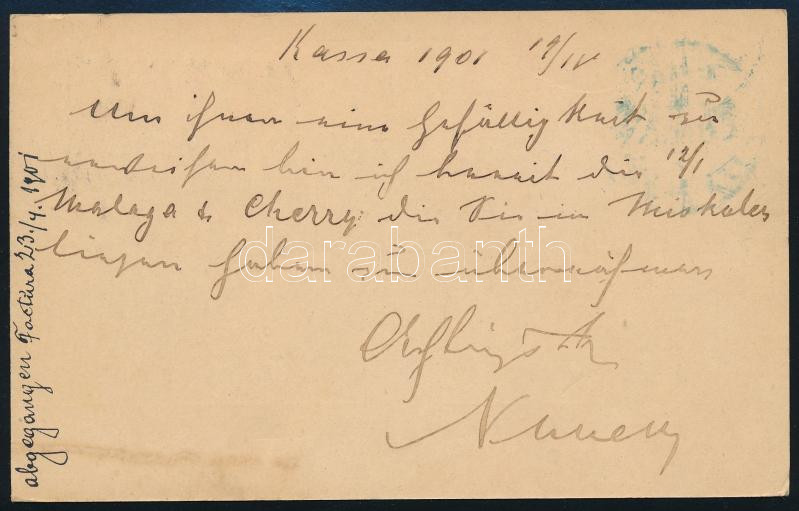 Kassa 1901 19/IV
Um Ihnen eine Gefälligkeit zu
erweisen bin ich bereit die 12/1
Malaga & Cherry die Sie in Miskolcz
liegen haben zu übernehmen
darabanth
Nemes
abgegangen Factura 23./4. 1901